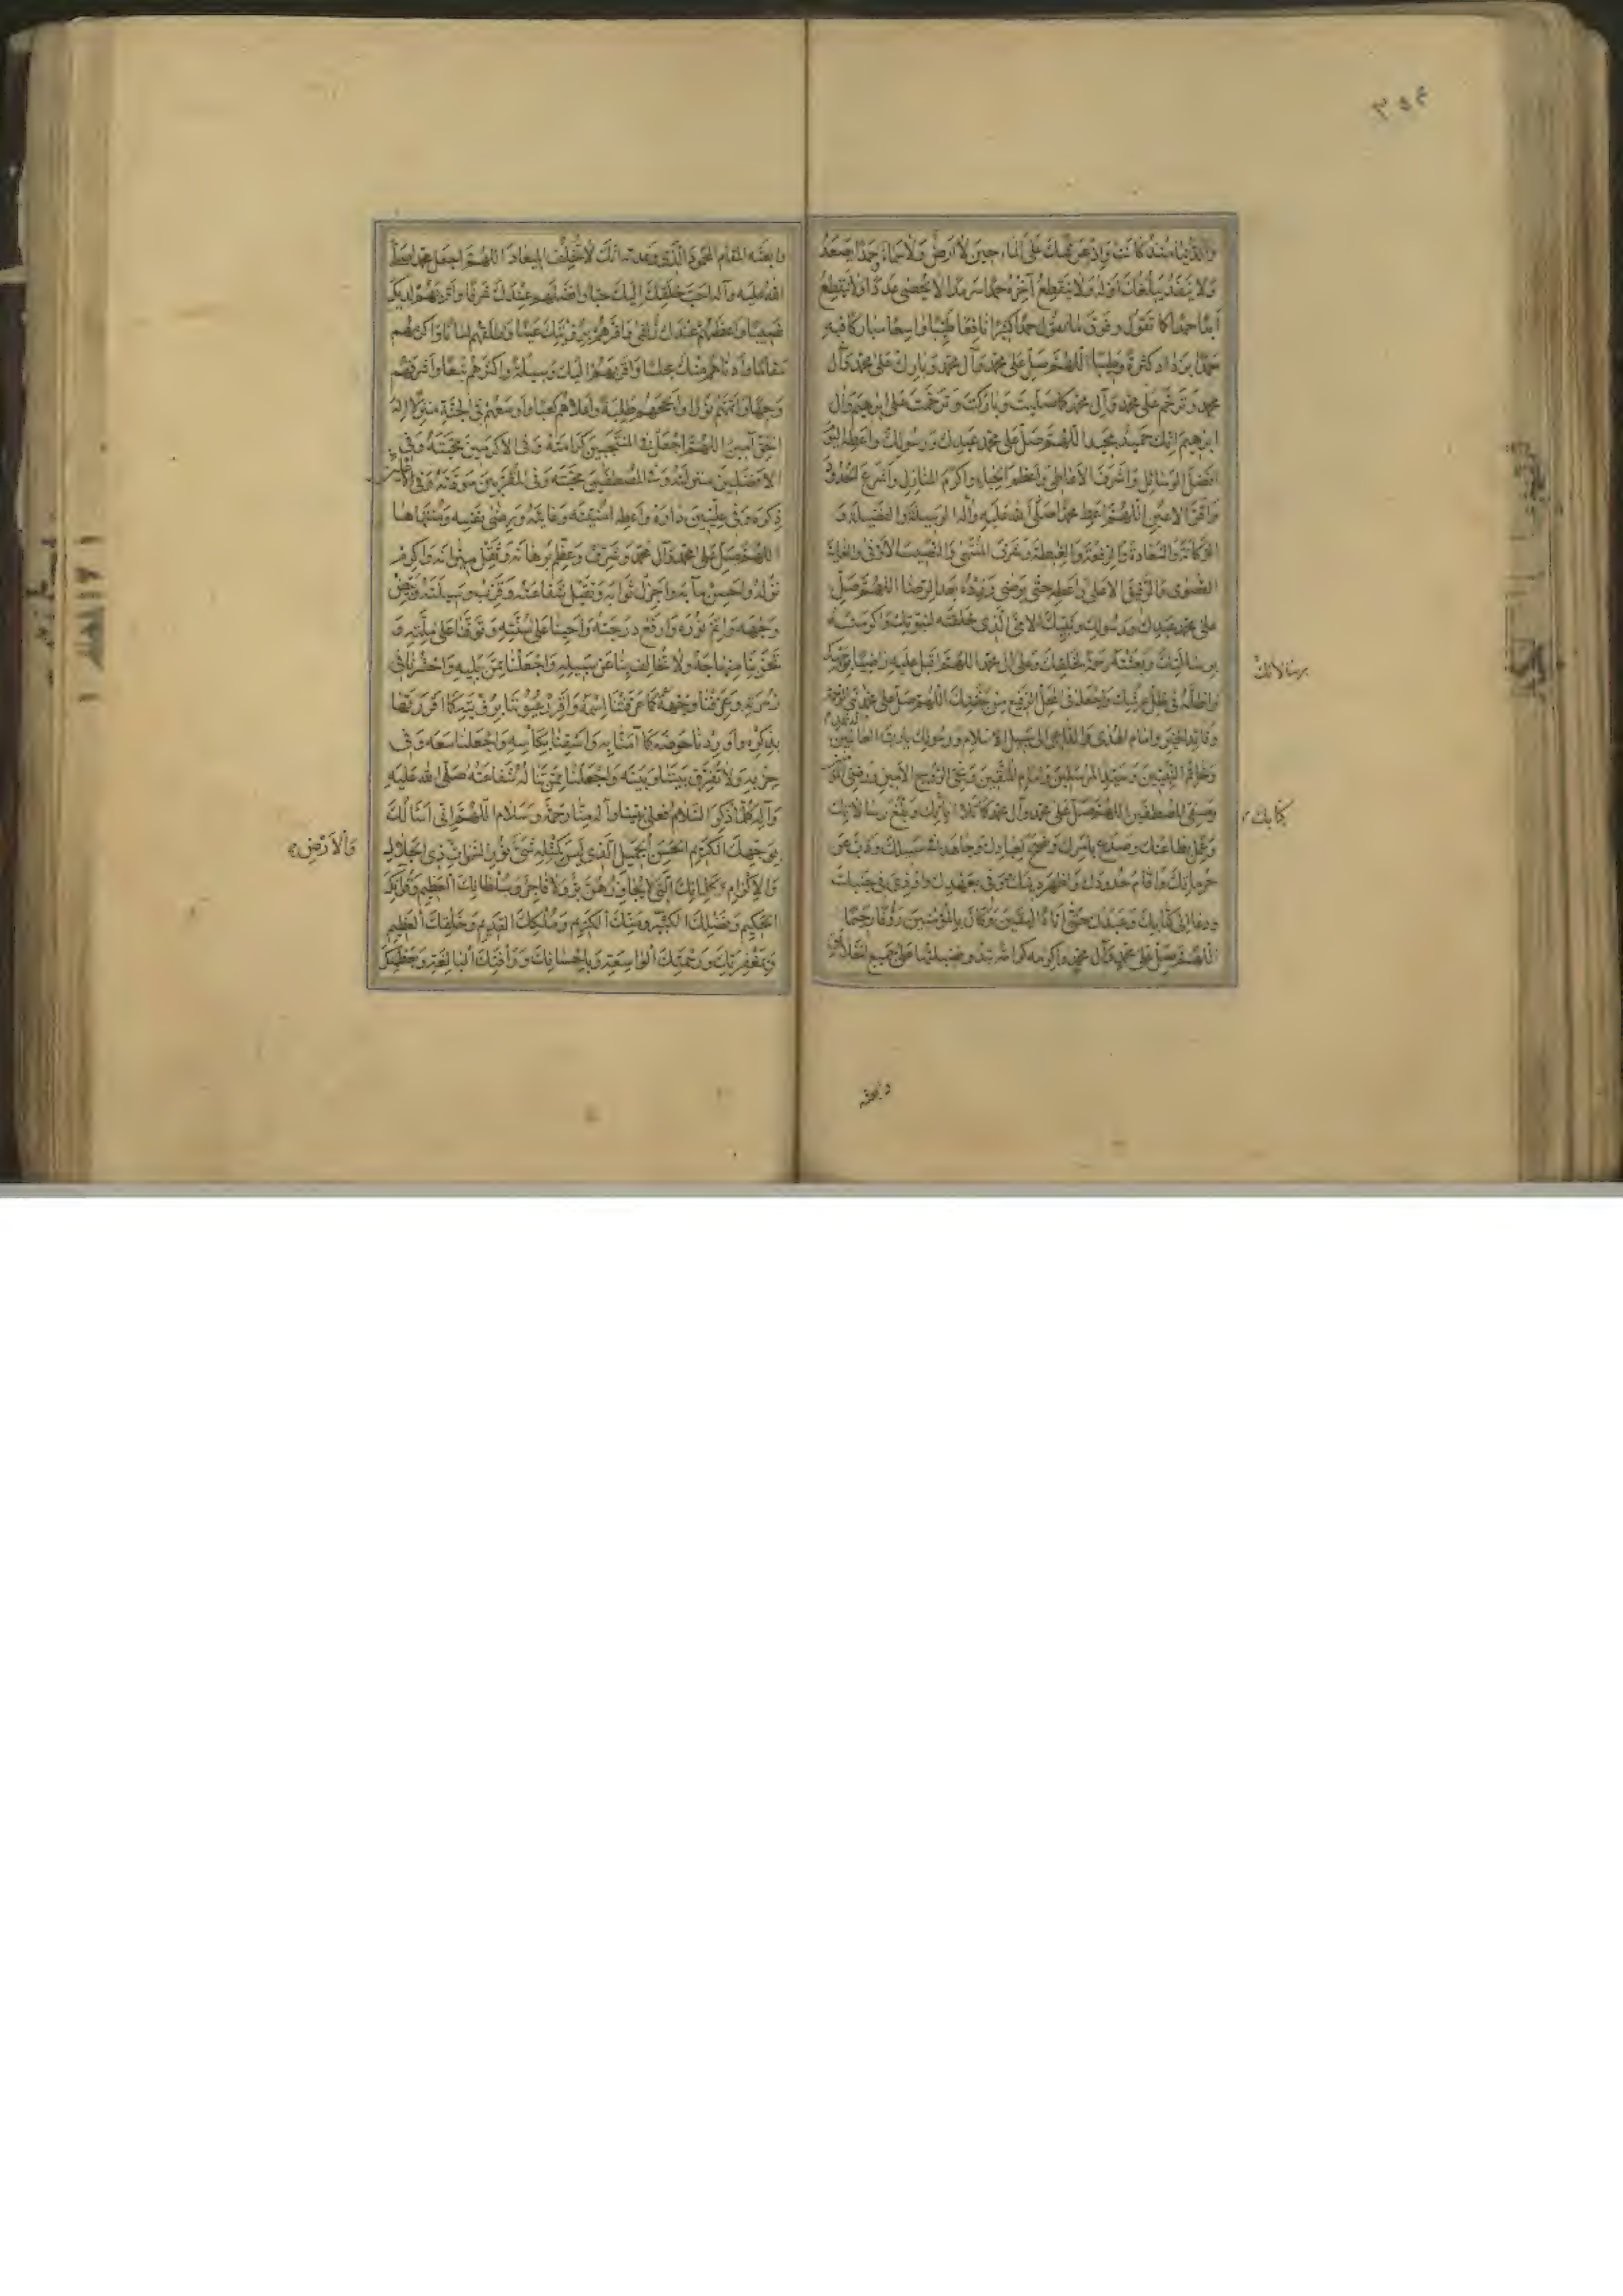 والدنيا منذ كانت واذ عرشك على الماء حين لا ارض ولا سماء حمدا يصعد
ولا ينفد يبلغك اوله ولا ينقطع آخره حمدا سرمدا لا يحصى عددا ولا ينقطع
ابدا حمدا كما تقول وفوق ما يقول حمدا كثيرا نافعا طيبا واسعا مباركا فيه
حمدا يزداد كثرة وطيبا اللهم صل على محمد وآل محمد وبارك على محمد وآل
محمد وترحم على محمد وآل محمد كما صليت وباركت وترحمت على ابرهيم وآل
ابرهيم انك حميد مجيد اللهم صل على محمد عبدك ورسولك واعطه اليوم
افضل الوسائل واشرف الاعاطي واعظم الحباء واكرم المنازل واسرع الحدود
واقر الاعين اللهم اعط محمدا صلى الله عليه وآله الوسيلة والفضيلة و
المكانة والسعادة والرفعة والغبطة وشرف المنتهى والنصيب الاوفى والغاية
القصوى والرفيق الاعلى واعطه حتى يرضى وزده بعد الرضا اللهم صل
على محمد عبدك ورسولك ونبيك الامي الذي خلقته لنبوتك واكرمته
برسالتك وبعثته رحمة لخلقك وعلى آل محمد اللهم اقبل عليه راضيا بوجهك
واظله في ظل عرشك واجعله في المحل الرفيع من جنتك اللهم صل على محمد نبي الرحمة
وقائد الخير وامام الهدى والداعي الى سبيل الاسلام ورسولك يا رب العالمين
وخاتم النبيين وسيد المرسلين وامام المتقين ونجي الروح الامين ورضي
وصفي المصطفين اللهم صل على محمد وآل محمد كما تلا آياتك وبلغ رسالاتك
وعمل بطاعتك وصدع بامرك ونصح لعبادك وجاهد في سبيلك وذب عن
حرماتك واقام حدودك واظهر دينك ووفى بعهدك واوذي في جنبك
ودعا الى كتابك وعبدك حتى اتاه اليقين وكان بالمؤمنين رؤوفا رحيما
اللهم صل على محمد وآل محمد واكرمه كرامة تبدو فضيلتها على جميع الخلائق
برسالاتك
كتابك
وابعثه
وابعثه المقام المحمود الذي وعدته انك لا تخلف الميعاد اللهم اجعل محمدا صلى
الله عليه وآله احب خلقك اليك حبا وافضلهم عندك شرفا واوفرهم لديك
نصيبا واعظمهم عندك زلفى واقرهم برؤيتك عينا واطلقهم لسانا واكرمهم
مقاما وادناهم منك مجلسا واقربهم اليك وسيلة واكثرهم تبعا واشرقهم
وجها واتمهم نورا وانجحهم طلبة واعلاهم كعبا واوسعهم في الجنة منزلا اله
الحق آمين اللهم اجعل في المنتجبين كرامته وفي الاكرمين محبته وفي
الافضلين منزلته وفي المصطفين محبته وفي المقربين مودته وفي
ذكره وفي عليين داره واعطه امنيته وغايته ورضى نفسه ومنتهاها
اللهم صل على محمد وآل محمد وشرف وعظم برهانه وثقل ميزانه واكرم
نزله واحسن مآبه واجزل ثوابه وتقبل شفاعته وقرب وسيلته وبيض
وجهه واتم نوره وارفع درجته واحينا على سنته وتوفنا على ملته و
تحر بنا منهاجه ولا تخالف بنا عن سبيله واجعلنا ممن يليه واحشرنا في
زمرته وعرفنا وجهه كما عرفتنا اسمه واقرر عيوننا برؤيته كما اقررتها
بذكره واوردنا حوضه كما آمنا به واسقنا بكأسه واجعلنا معه وفي
حزبه ولا تفرق بيننا وبينه واجعلنا ممن تنا له شفاعته صلى الله عليه
وآله كلما ذكر السلام فعلى نبينا وآله منا رحمة وسلام اللهم اني اسألك
بوجهك الكريم الحسن الجميل الذي ليس كمثله شيء نور السموات ذي الجلال
والاكرام وبكلماتك التي لا يجاوزهن بر ولا فاجر وبسلطانك العظيم وقرآنك
الحكيم وفضلك الكبير ومنك الكريم وملكك القديم وخلقك العظيم
وبمغفرتك ورحمتك الواسعة وباحسانك ورأفتك البالغة وبعظمتك
والارض